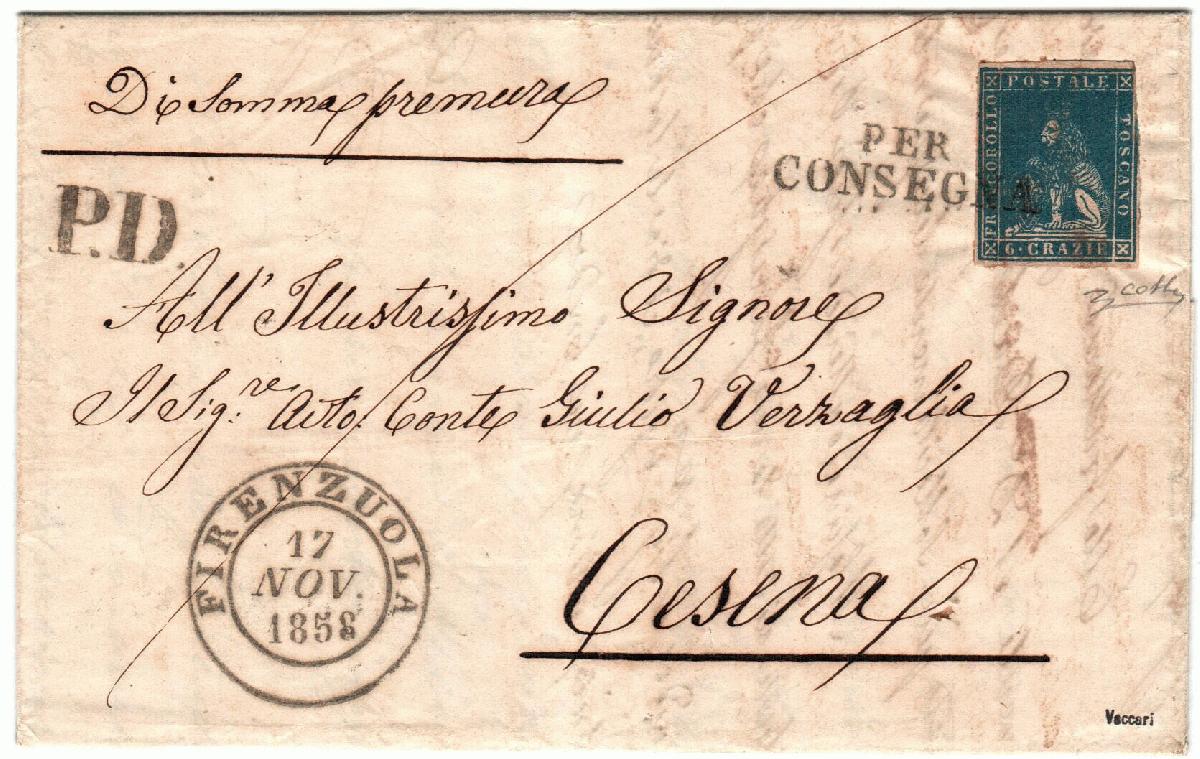 Di Somma premura
P.D.
PER
CONSEGNA
FRANCOBOLLO
POSTALE
TOSCANO
6 · CRAZIE
All' Illustrissimo Signore
Il Sig.re Conte Giulio Verzaglia
FIRENZUOLA
17
NOV.
1858
Cesena
Vaccari